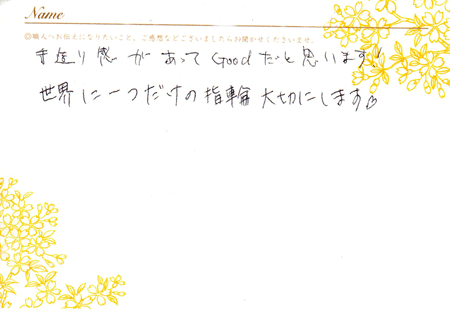 Name
◎職人へお伝えになりたいこと、ご感想などございましたらお聞かせくださいませ。
手造り感があってGoodだと思います!
世界に一つだけの指輪大切にします